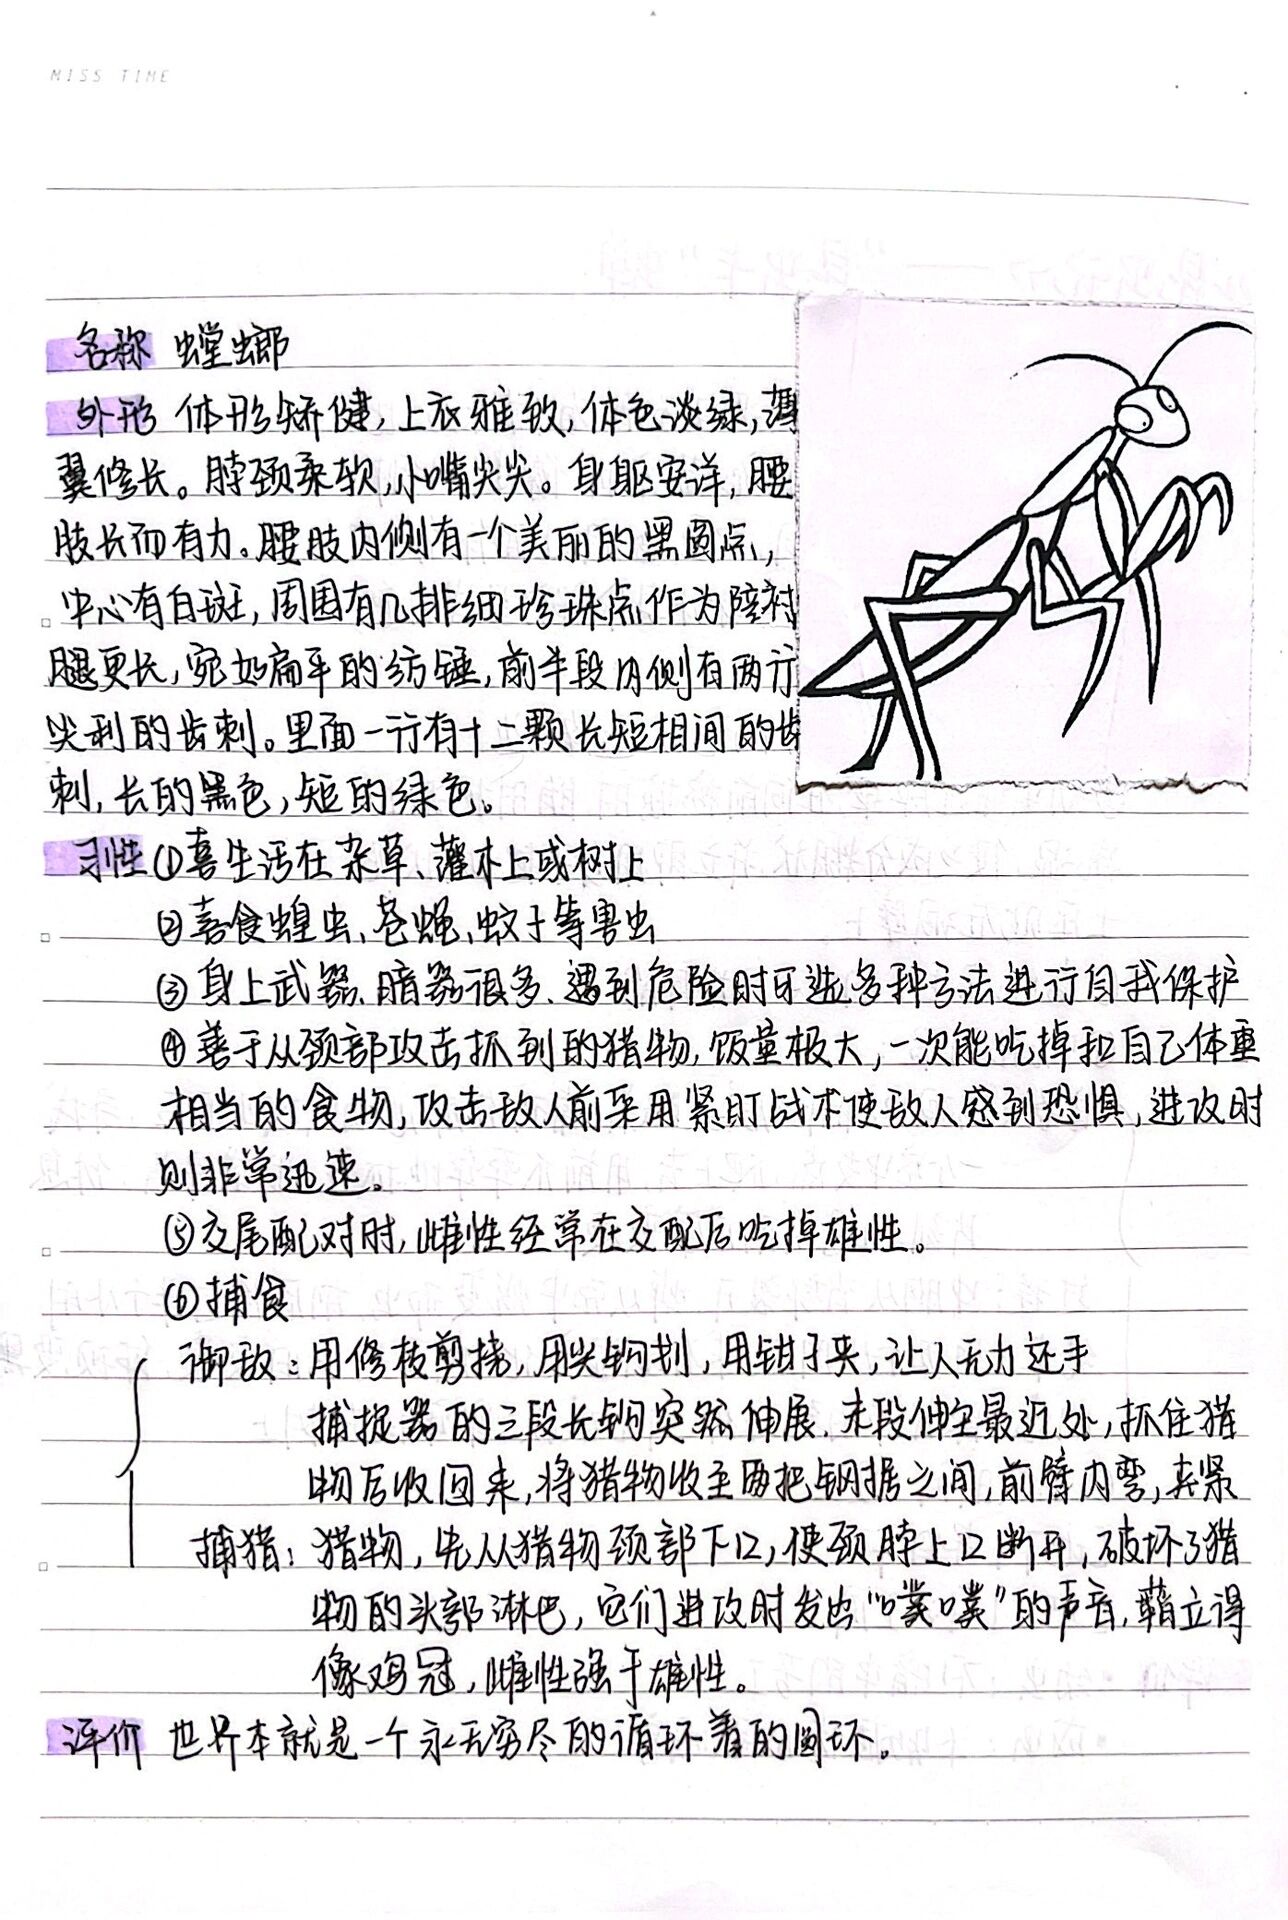 MISS TIME
名称 螳螂
外形 体形矫健,上衣雅致,体色淡绿,薄
翼修长。脖颈柔软,小嘴尖尖。身躯安详,腰
肢长而有力。腰肢内侧有一个美丽的黑圆点,
中心有白斑,周围有几排细珍珠点作为陪衬
腿更长,宛如扁平的纺锤,前半段内侧有两行
尖利的齿刺。里面一行有十二颗长短相间的齿
刺,长的黑色,短的绿色。
习性①喜生活在杂草、灌木上或树上
②喜食蝗虫、苍蝇、蚊子等害虫
③身上武器、暗器很多、遇到危险时可选多种方法进行自我保护
④善于从颈部攻击抓到的猎物,饭量极大,一次能吃掉和自己体重
相当的食物,攻击敌人前采用紧盯战术使敌人感到恐惧,进攻时
则非常迅速。
⑤交尾配对时,雌性经常在交配后吃掉雄性。
⑥捕食
御敌:用修枝剪挠,用尖钩划,用钳子夹,让人无力还手
捕捉器的三段长钩突然伸展.末段伸至最近处,抓住猎
物后收回来,将猎物收至两把钢据之间,前臂内弯,夹紧
捕猎:猎物,先从猎物颈部下口,使颈脖上口断开,破坏了猎
物的头部淋巴,它们进攻时发出“噗噗”的声音,翦立得
像鸡冠,雌性强于雄性。
评价 世界本就是一个永无穷尽的循环着的圆环。